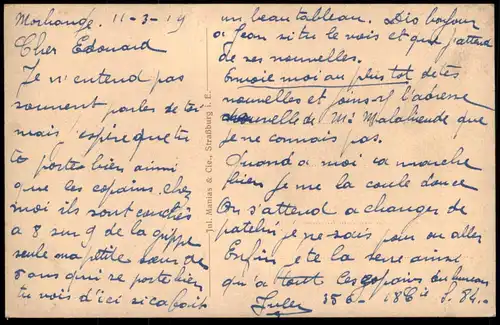 Morhange. 11-3-19
Cher Edouard
Je n'entend pas
souvent parler de toi
mais j'espère que tu
te portes bien ainsi
que les copains, chez
moi ils sont couchés
a 8 sur 9 de la grippe
seule ma ptite sœur de
8 ans qui se porte bien
tu vois d'ici si ca fait
Jul. Manias & Cie., Straßburg i. E.
un beau tableau. Dis bonjour
a Jean si tu le vois et que j'attend
de ses nouvelles.
Envoie moi au plus tot de tes
nouvelles et joins s.p. l'adresse
nouvelle de Mr que
je ne connais pas.
Quand a moi ca marche
bien je me la coule douce
On s'attend a changer de
patelin je ne sais pour ou aller
Enfin et la tienne ainsi
qu'a tout les copains du bureau
Jules 356 18e Cie S. 84.